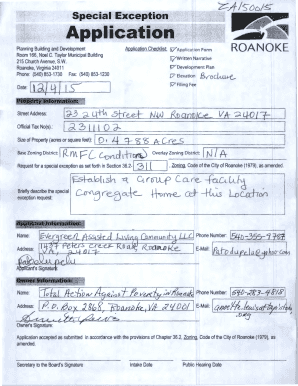 ZA150015
Special Exception
Application
ROANOKE
Planning Building and Development
Room 166, Noel C. Taylor Municipal Building
215 Church Avenue, S.W.
Roanoke, Virginia 24011
Phone: (540) 853-1730 Fax: (540) 853-1230
Date: 12/4/15
Application Checklist:
Application Form
Written Narrative
Development Plan
Elevation Brochure
Filing Fee
Property Information:
Street Address: 23 24th Street NW Roanoke VA 24017
Official Tax No(s).: 2311102
Size of Property (acres or square feet): 0.4788 Acres
Base Zoning District: RMF C(Condition) Overlay Zoning District: N/A
Request for a special exception as set forth in Section 36.2- 311 Zoning, Code of the City of Roanoke (1979), as amended.
Briefly describe the special exception request: Establish a Group Care facility
Congregate Home at this Location
Applicant Information:
Name: Evergreen Assisted Living Community LLC Phone Number: 540-355-9787
Address: 1437 Peters Creek Road, Roanoke
VA, 24017
E-Mail:
Applicant's Signature:
Owner Information:
Name: Total Action Against Poverty in Roanoke Phone Number: 540-283-4818
Address: P.O. Box 2868, Roanoke, VA 24001 E-Mail:
Owner's Signature:
Application accepted as submitted in accordance with the provisions of Chapter 36.2, Zoning, Code of the City of Roanoke (1979), as amended.
Secretary to the Board's Signature: Intake Date Public Hearing Date